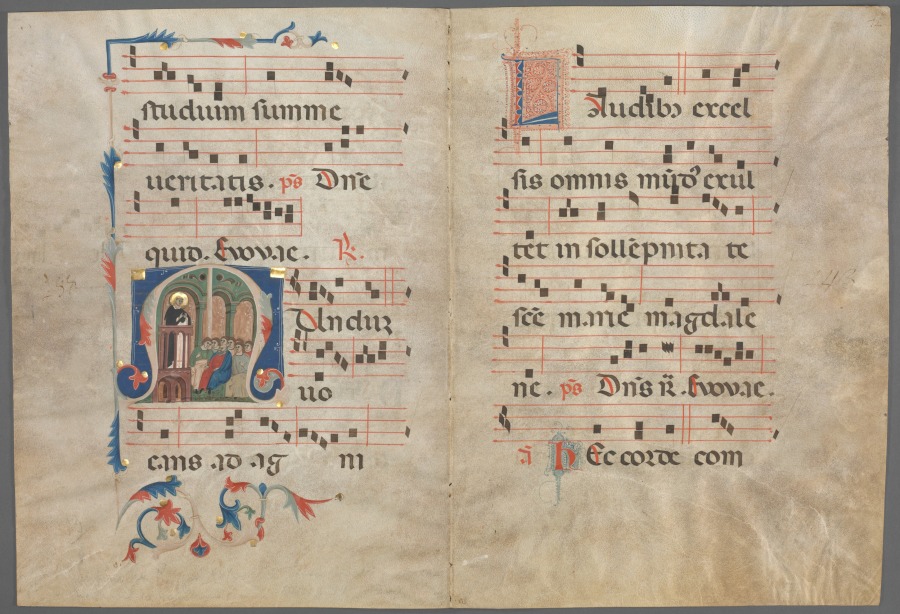 studium summe
ueritatis. ps̄ Dn̄e
quid. Evovae. R̷.
MUnduʒ
uo
cans ad ag ni
LAudibꝫ excel
sis omnis mūdꝰ exul
tet in sollēpnita te
sc̄e marie magdale
ne. ps̄ Dn̄s R̄. Evovae.
ā HEc corde com